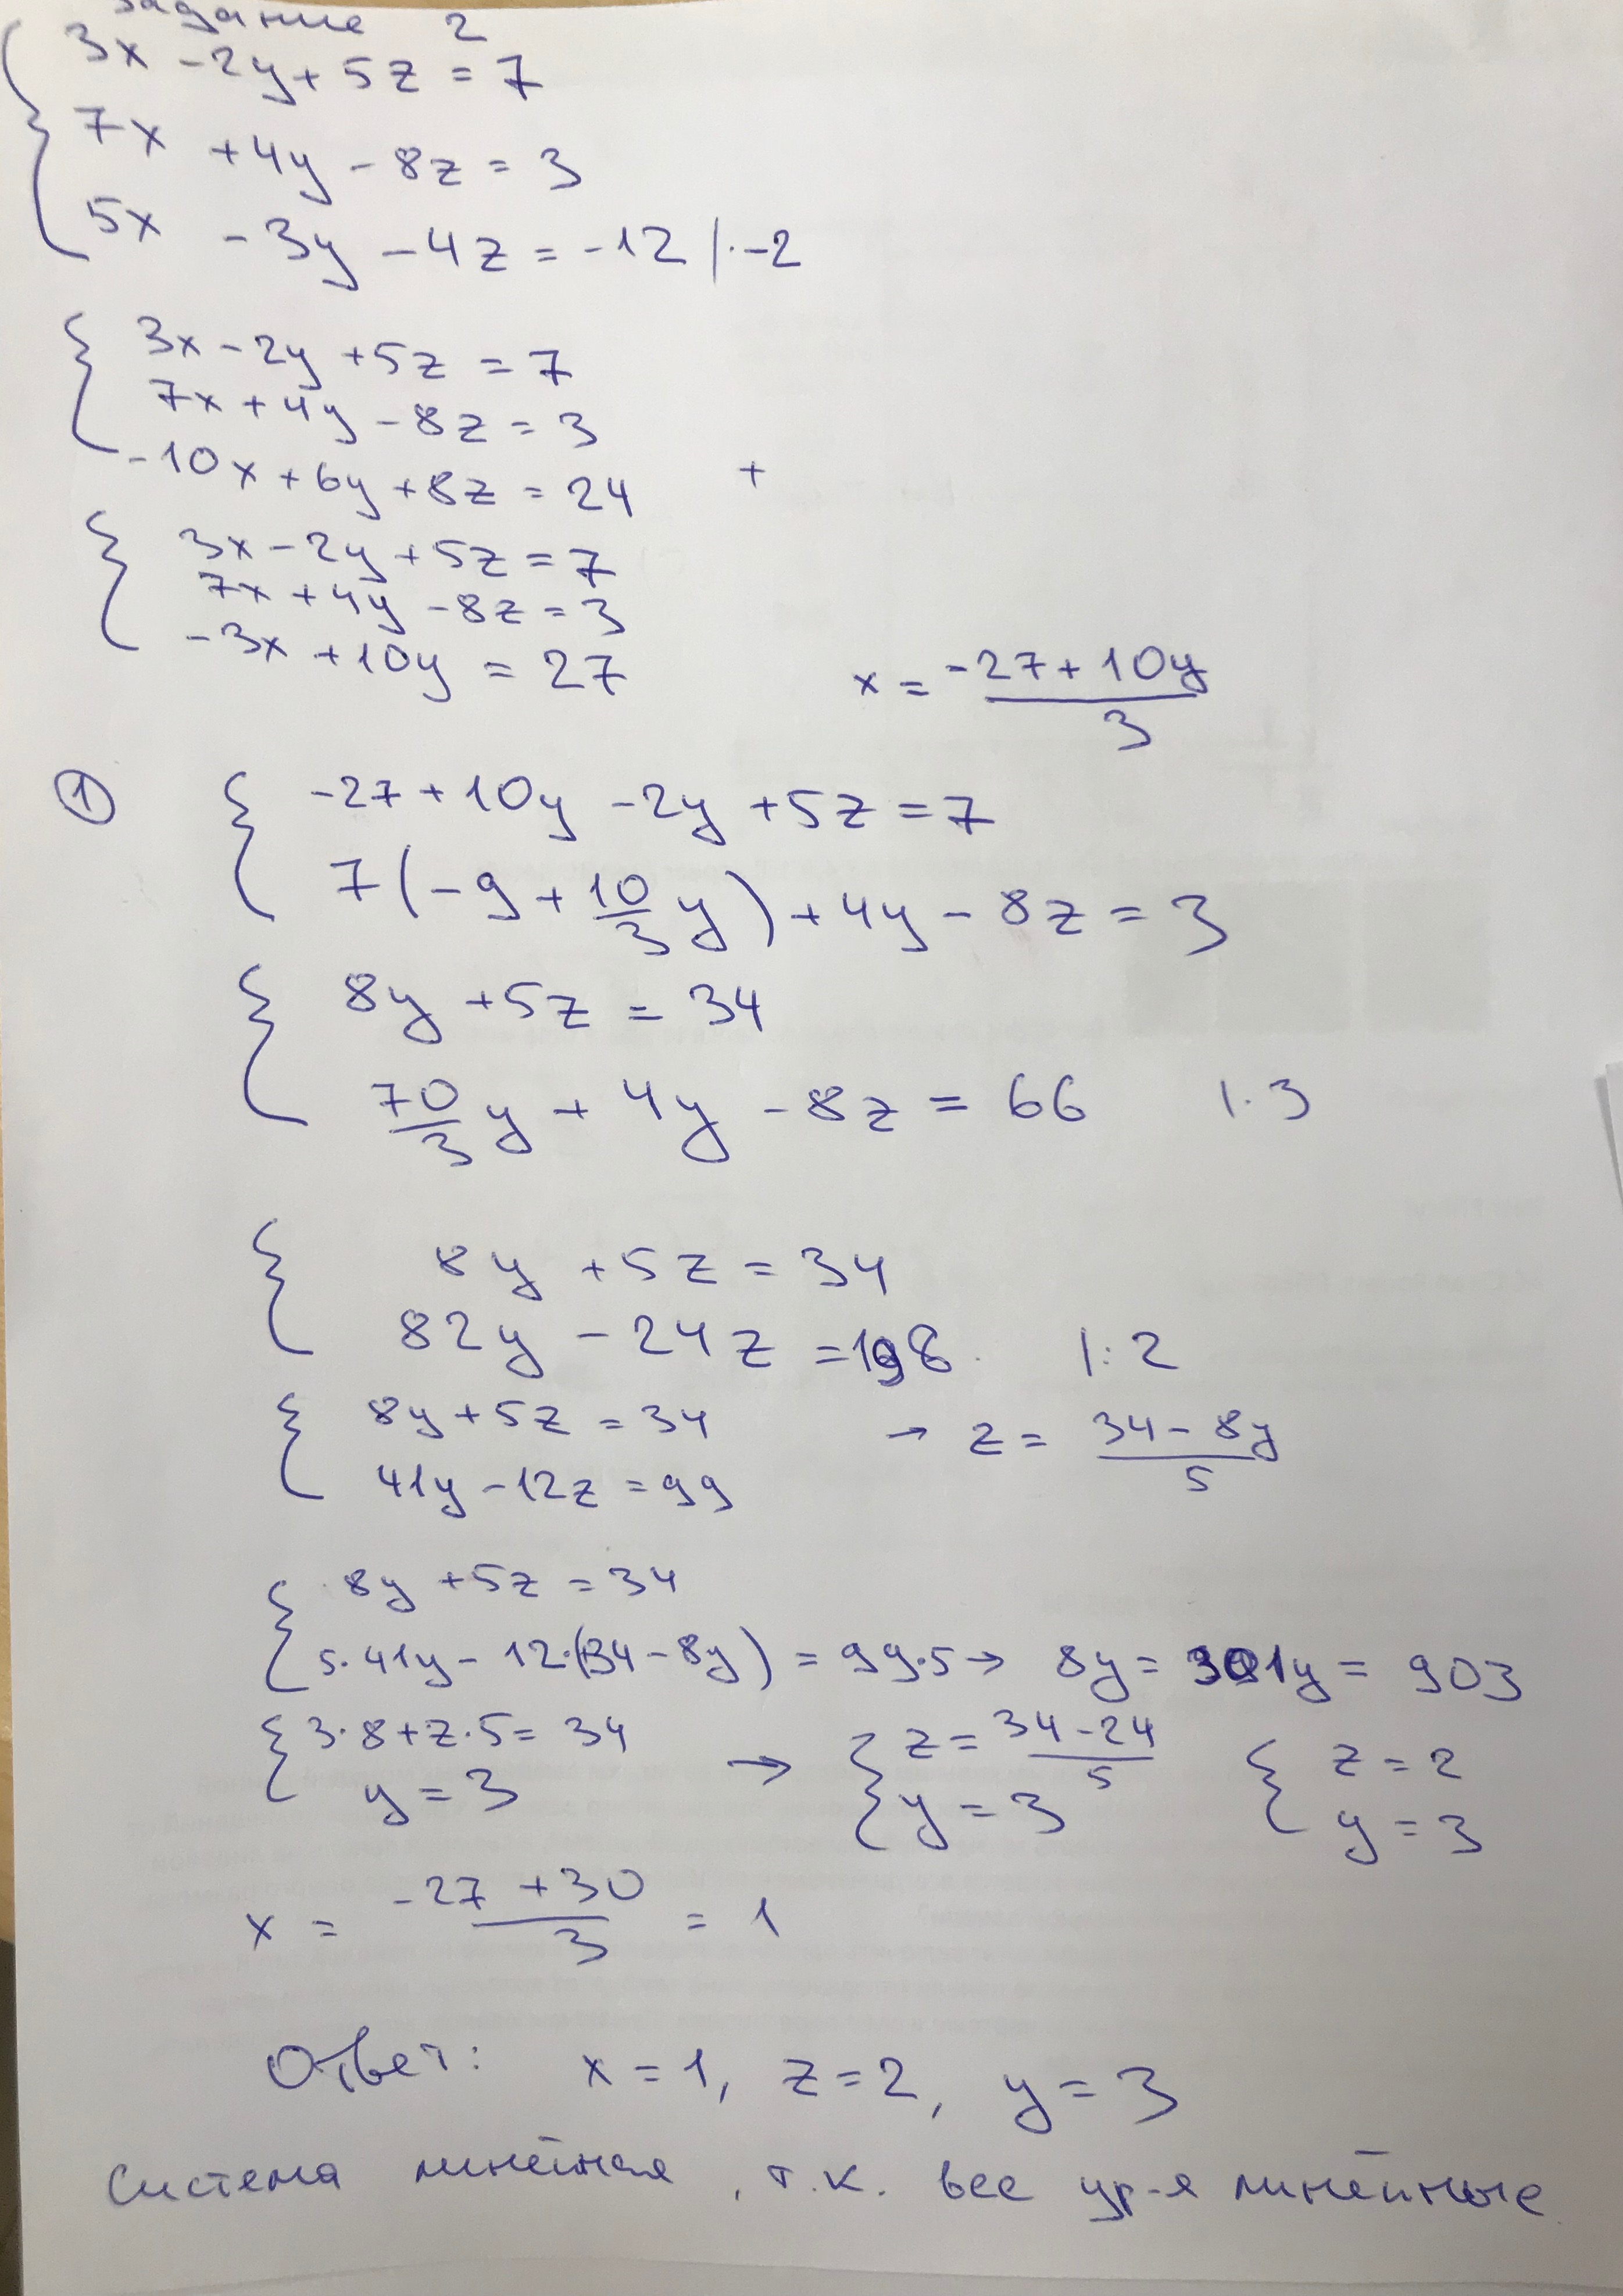 Задание 2
3x - 2y + 5z = 7
7x + 4y - 8z = 3
5x - 3y - 4z = -12 |·-2
3x - 2y + 5z = 7
7x + 4y - 8z = 3
-10x + 6y + 8z = 24 +
3x - 2y + 5z = 7
7x + 4y - 8z = 3
-3x + 10y = 27 x = (-27 + 10y)/3
① -27 + 10y - 2y + 5z = 7
7(-9 + 10/3 y) + 4y - 8z = 3
8y + 5z = 34
70/3 y + 4y - 8z = 66 |·3
8y + 5z = 34
82y - 24z = 198 |:2
8y + 5z = 34 → z = (34 - 8y)/5
41y - 12z = 99
8y + 5z = 34
5·41y - 12·(34 - 8y) = 99·5 → 8y = 301y = 903
3·8 + z·5 = 34 → z = (34 - 24)/5 z = 2
y = 3 y = 3 y = 3
x = (-27 + 30)/3 = 1
Ответ: x = 1, z = 2, y = 3
Система линейная, т.к. все ур-я линейные